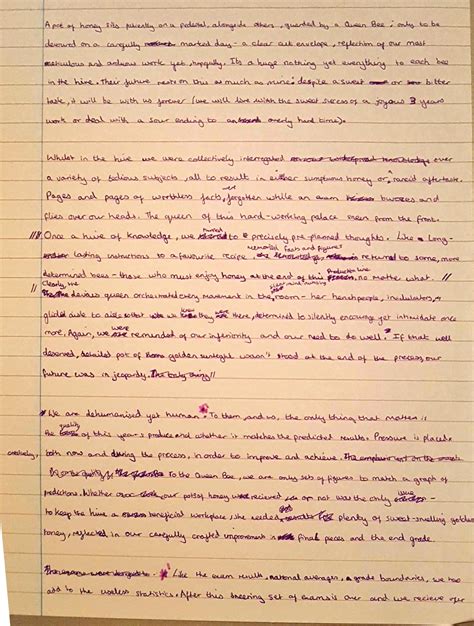 A pot of honey sits patiently on a pedestal, alongside others, guarded by a Queen Bee; only to be
devoured on a carefully marked day - a clear cut envelope, reflection of our most
meticulous and arduous work yet, hopefully. Its a huge nothing yet everything to each bee
in the hive. Their future rests on this as much as mine: despite a sweet or bitter
taste, it will be with us forever (we will live with the sweet success of a joyous 3 years
work or deal with a sour ending to an overly hard time).
Whilst in the hive we were collectively interrogated over
a variety of tedious subjects, all to result in either sumptuous honey or rancid aftertaste.
Pages and pages of worthless facts, forgotten while an exam buzzes and
flies over our heads. The queen of this hard-working palace seen from the front.
Once a hive of knowledge, we to precisely pre-planned thoughts. Like a long-
lasting instructions to a favourite recipe, memorised facts and figures returned to some, more
determined bees - those who must enjoy honey at the end of this production line, no matter what.
Clearly, the devious queen orchestrated every movement in the room - her henchpeople, invigilators,
glided aisle to aisle so that we knew they were there, determined to silently encourage yet intimidate once
more. Again, we were reminded of our inferiority and our need to do well. If that well
deserved, detailed pot of golden sunlight wasn't stood at the end of the process, our
future was in jeopardy.
We are dehumanised yet human. To them, and us, the only thing that matters is
the quality of this year's produce and whether it matches the predicted results. Pressure is placed,
both now and during the process, in order to improve and achieve.
To the Queen Bee, we are only sets of figures to match a graph of
predictions. Whether our pot of honey was recieved or not was the only issue -
to keep the hive a beneficial workplace, she needed plenty of sweet-smelling golden
honey, reflected in our carefully crafted improvement final pieces and the end grade.
Like the exam results, national averages, a grade boundaries, we too
add to the useless statistics. After this sneering set of exams is over and we recieve our